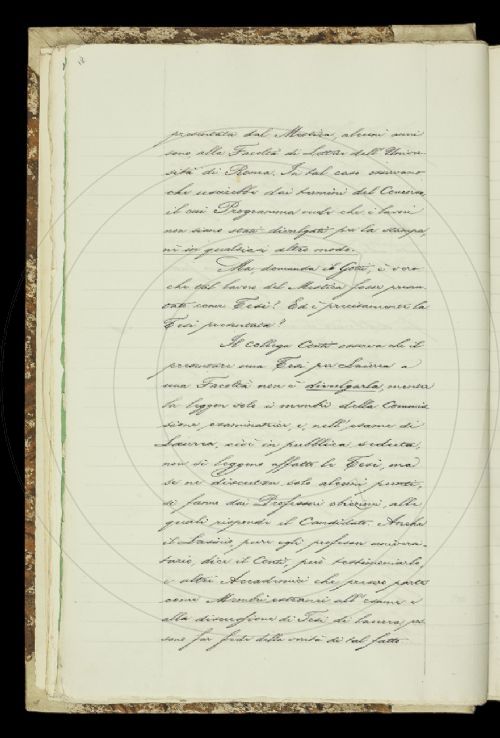 presentata dal Mestica, alcuni anni
sono, alla Facoltà di Lettere dell'Univer-
sità di Roma. In tal caso osservano
che uscirebbe dai termini del Concorso,
il cui Programma vuole che i lavori
non siano stati divulgati per la stampa
nè in qualsiasi altro modo.
Ma, domanda il Gotti, è vero
che tal lavoro del Mestica fosse presen-
tato come Tesi? Ed è precisamente la
Tesi presentata?
Il collega Conti osserva che il
presentare una Tesi per Laurea a
una Facoltà non è divulgarla, mentre
la leggon solo i membri della Commis-
sione esaminatrice, e, nell'esame di
Laurea, cioè in pubblica seduta,
non si leggono affatto le Tesi, ma
se ne discutono solo alcuni punti,
si fanno dai Professori obiezioni, alle
quali risponde il Candidato. Anche
il Lasinio, pure egli professore universi-
tario, dice il Conti, può testimoniarlo,
e altri Accademici che presero parte
come Membri estranei all'esame e
alla discussione di Tesi di laurea, pos-
sono far fede della verità di tal fatto.